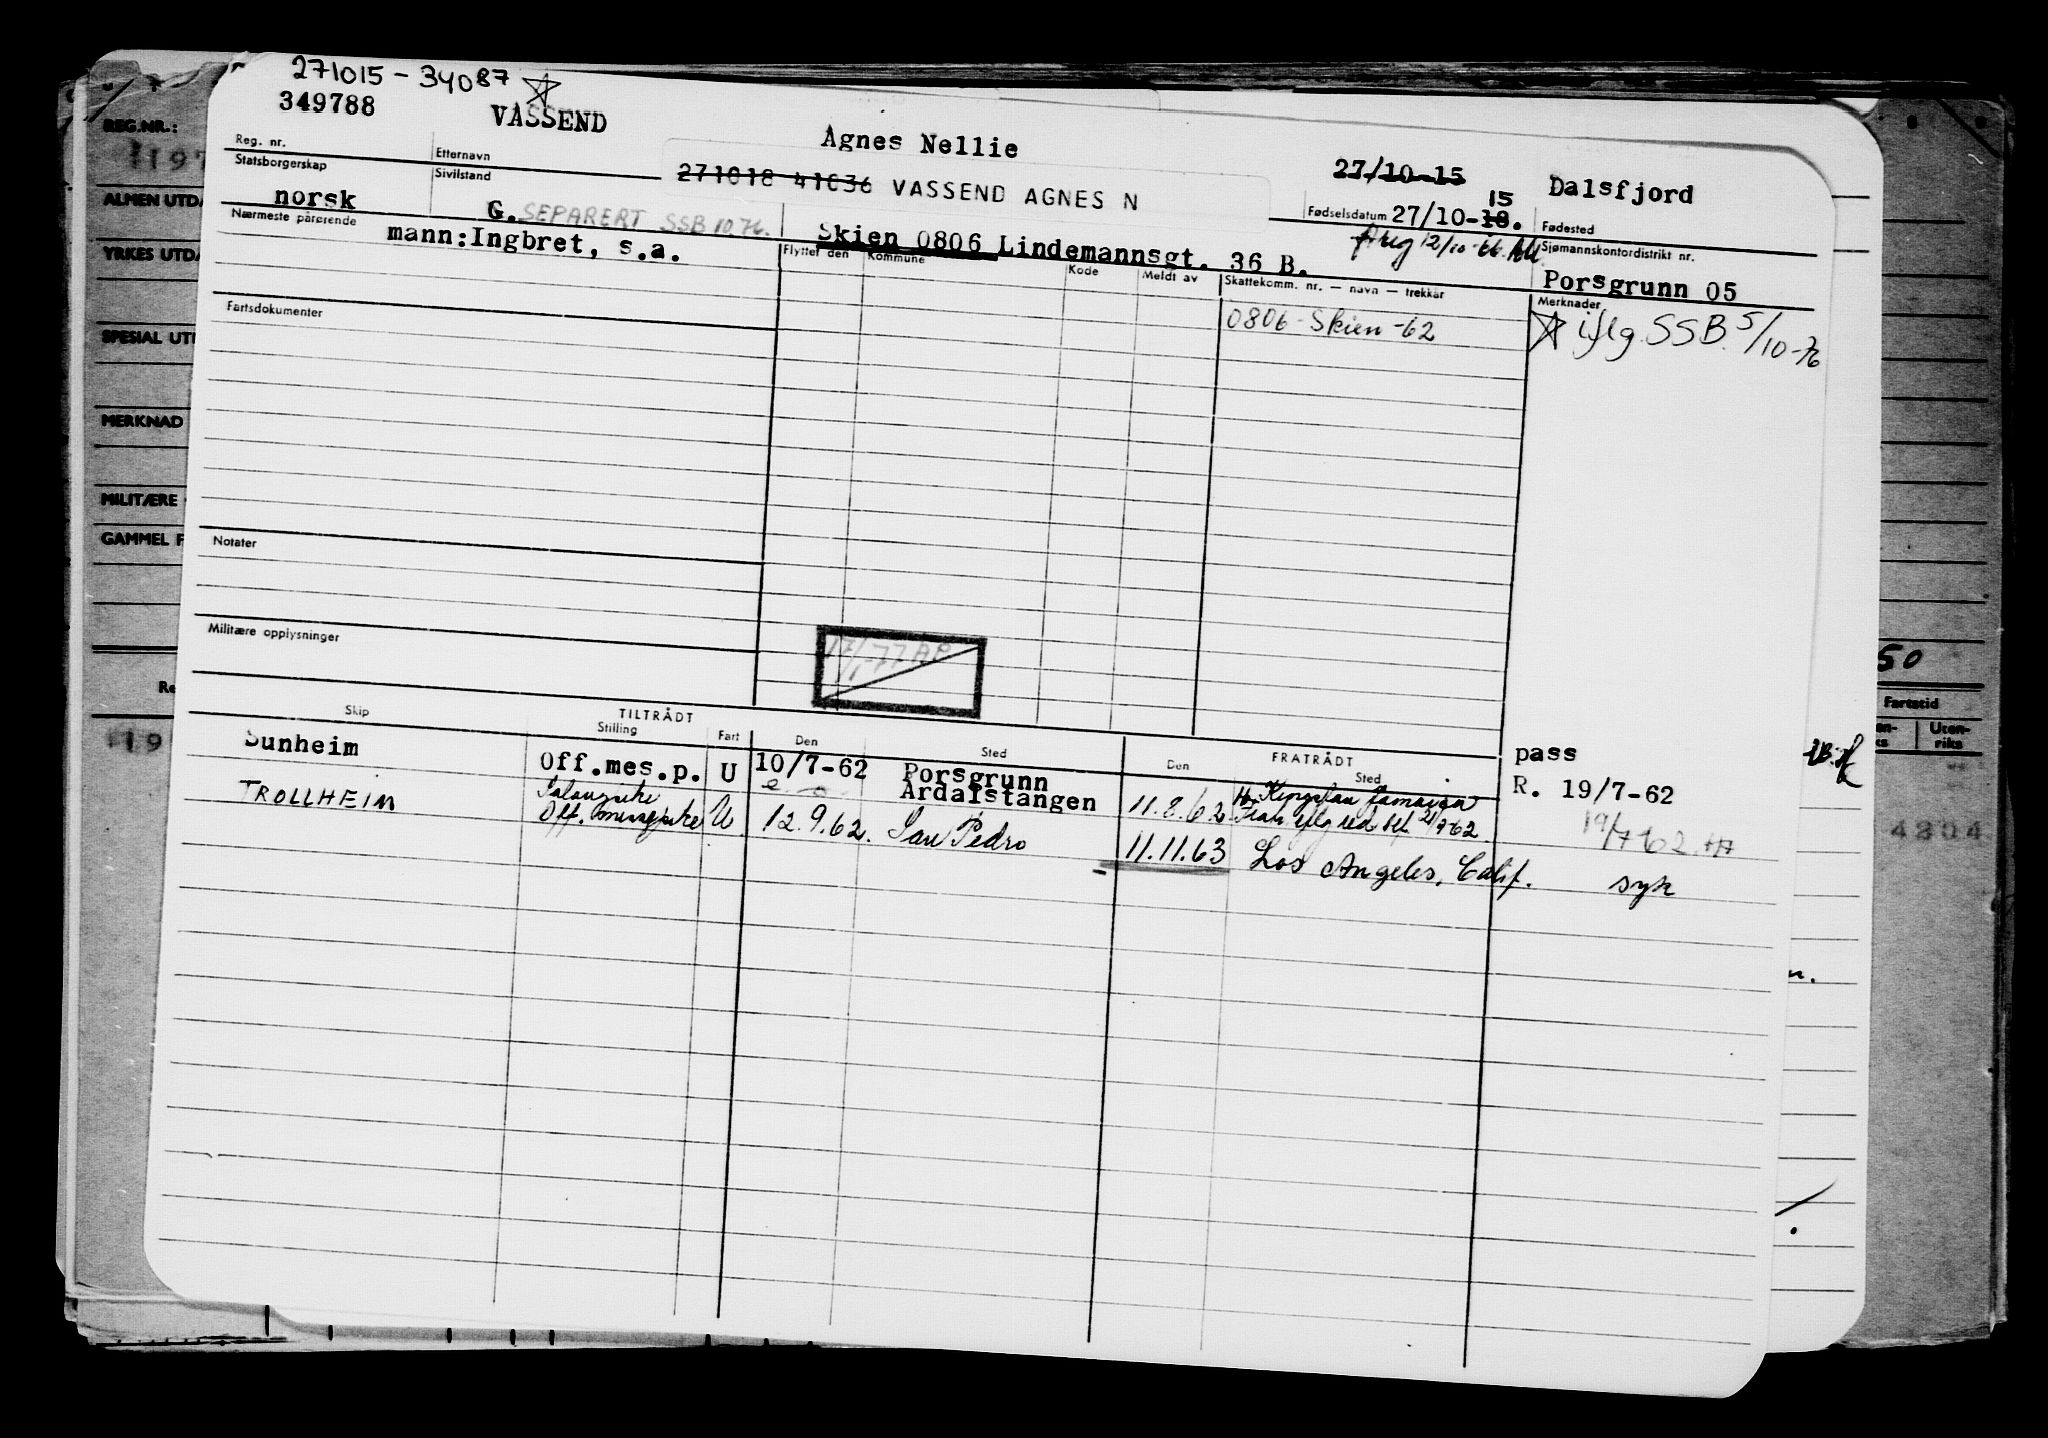 271015-34087
349788
VASSEND
Agnes Nellie
27/10-15
Dalsfjord
Reg. nr.
Etternavn
271018 41036 VASSEND AGNES N
Fødselsdatum 27/10-18. 15
Fødested
Statsborgerskap
Sivilstand
norsk
G. SEPARERT SSB 10.76.
Skien 0806 Lindemannsgt. 36 B.
12/10-66
Sjømannskontordistrikt nr.
Porsgrunn 05
Nærmeste pårørende
mann:Ingbret, s.a.
Flyttet den
Kommune
Kode
Meldt av
Skattekomm. nr. — navn — trekkår
Merknader
0806-Skien-62
iflg. SSB 5/10-76
Fartsdokumenter
Notater
Militære opplysninger
17/1-77 AP
Skip
TILTRÅDT
Stilling
Fart
Den
Sted
FRATRÅDT
Den
Sted
Sunheim
Off.mes.p.
U
10/7-62
Porsgrunn
Årdalstangen
11.8.62
Kingston Jamaica
pass
R. 19/7-62
19/7 62
TROLLHEIM
Salongpike
Off. messepike
U
12.9.62.
San Pedro
11.11.63
Los Angeles, Calif.
syk
REG.NR.:
1197
ALMEN UTDA
YRKES UTDA
SPESIAL UT
MERKNAD
MILITÆRE
GAMMEL F
Re
19
50
Fartstid
Uten-
riks
4204